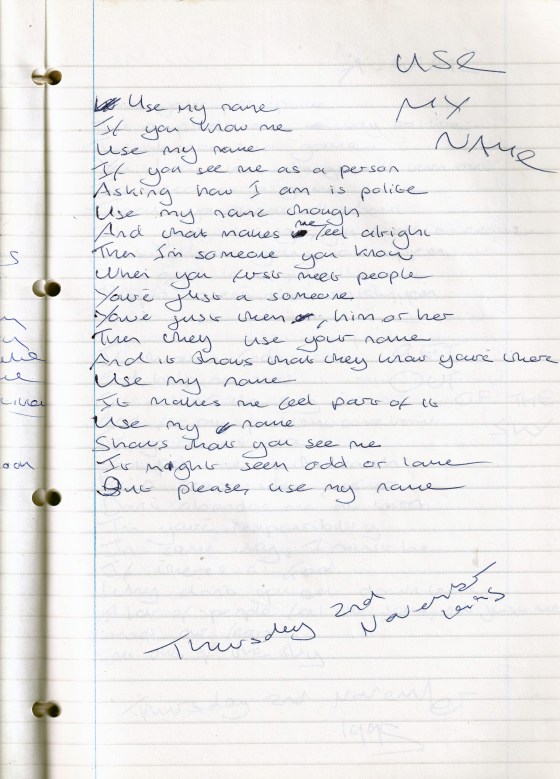 USE
MY
NAME
Use my name
If you know me
Use my name
If you see me as a person
Asking how I am is polite
Use my name though
And that makes me feel alright
Then I'm someone you know
When you first meet people
You're just a someone
You're just then, him or her
Then they use your name
And it shows that they know you're there
Use my name
It makes me feel part of it
Use my name
Shows that you see me
It might seem odd or lame
But please, use my name
Thursday 2nd
November